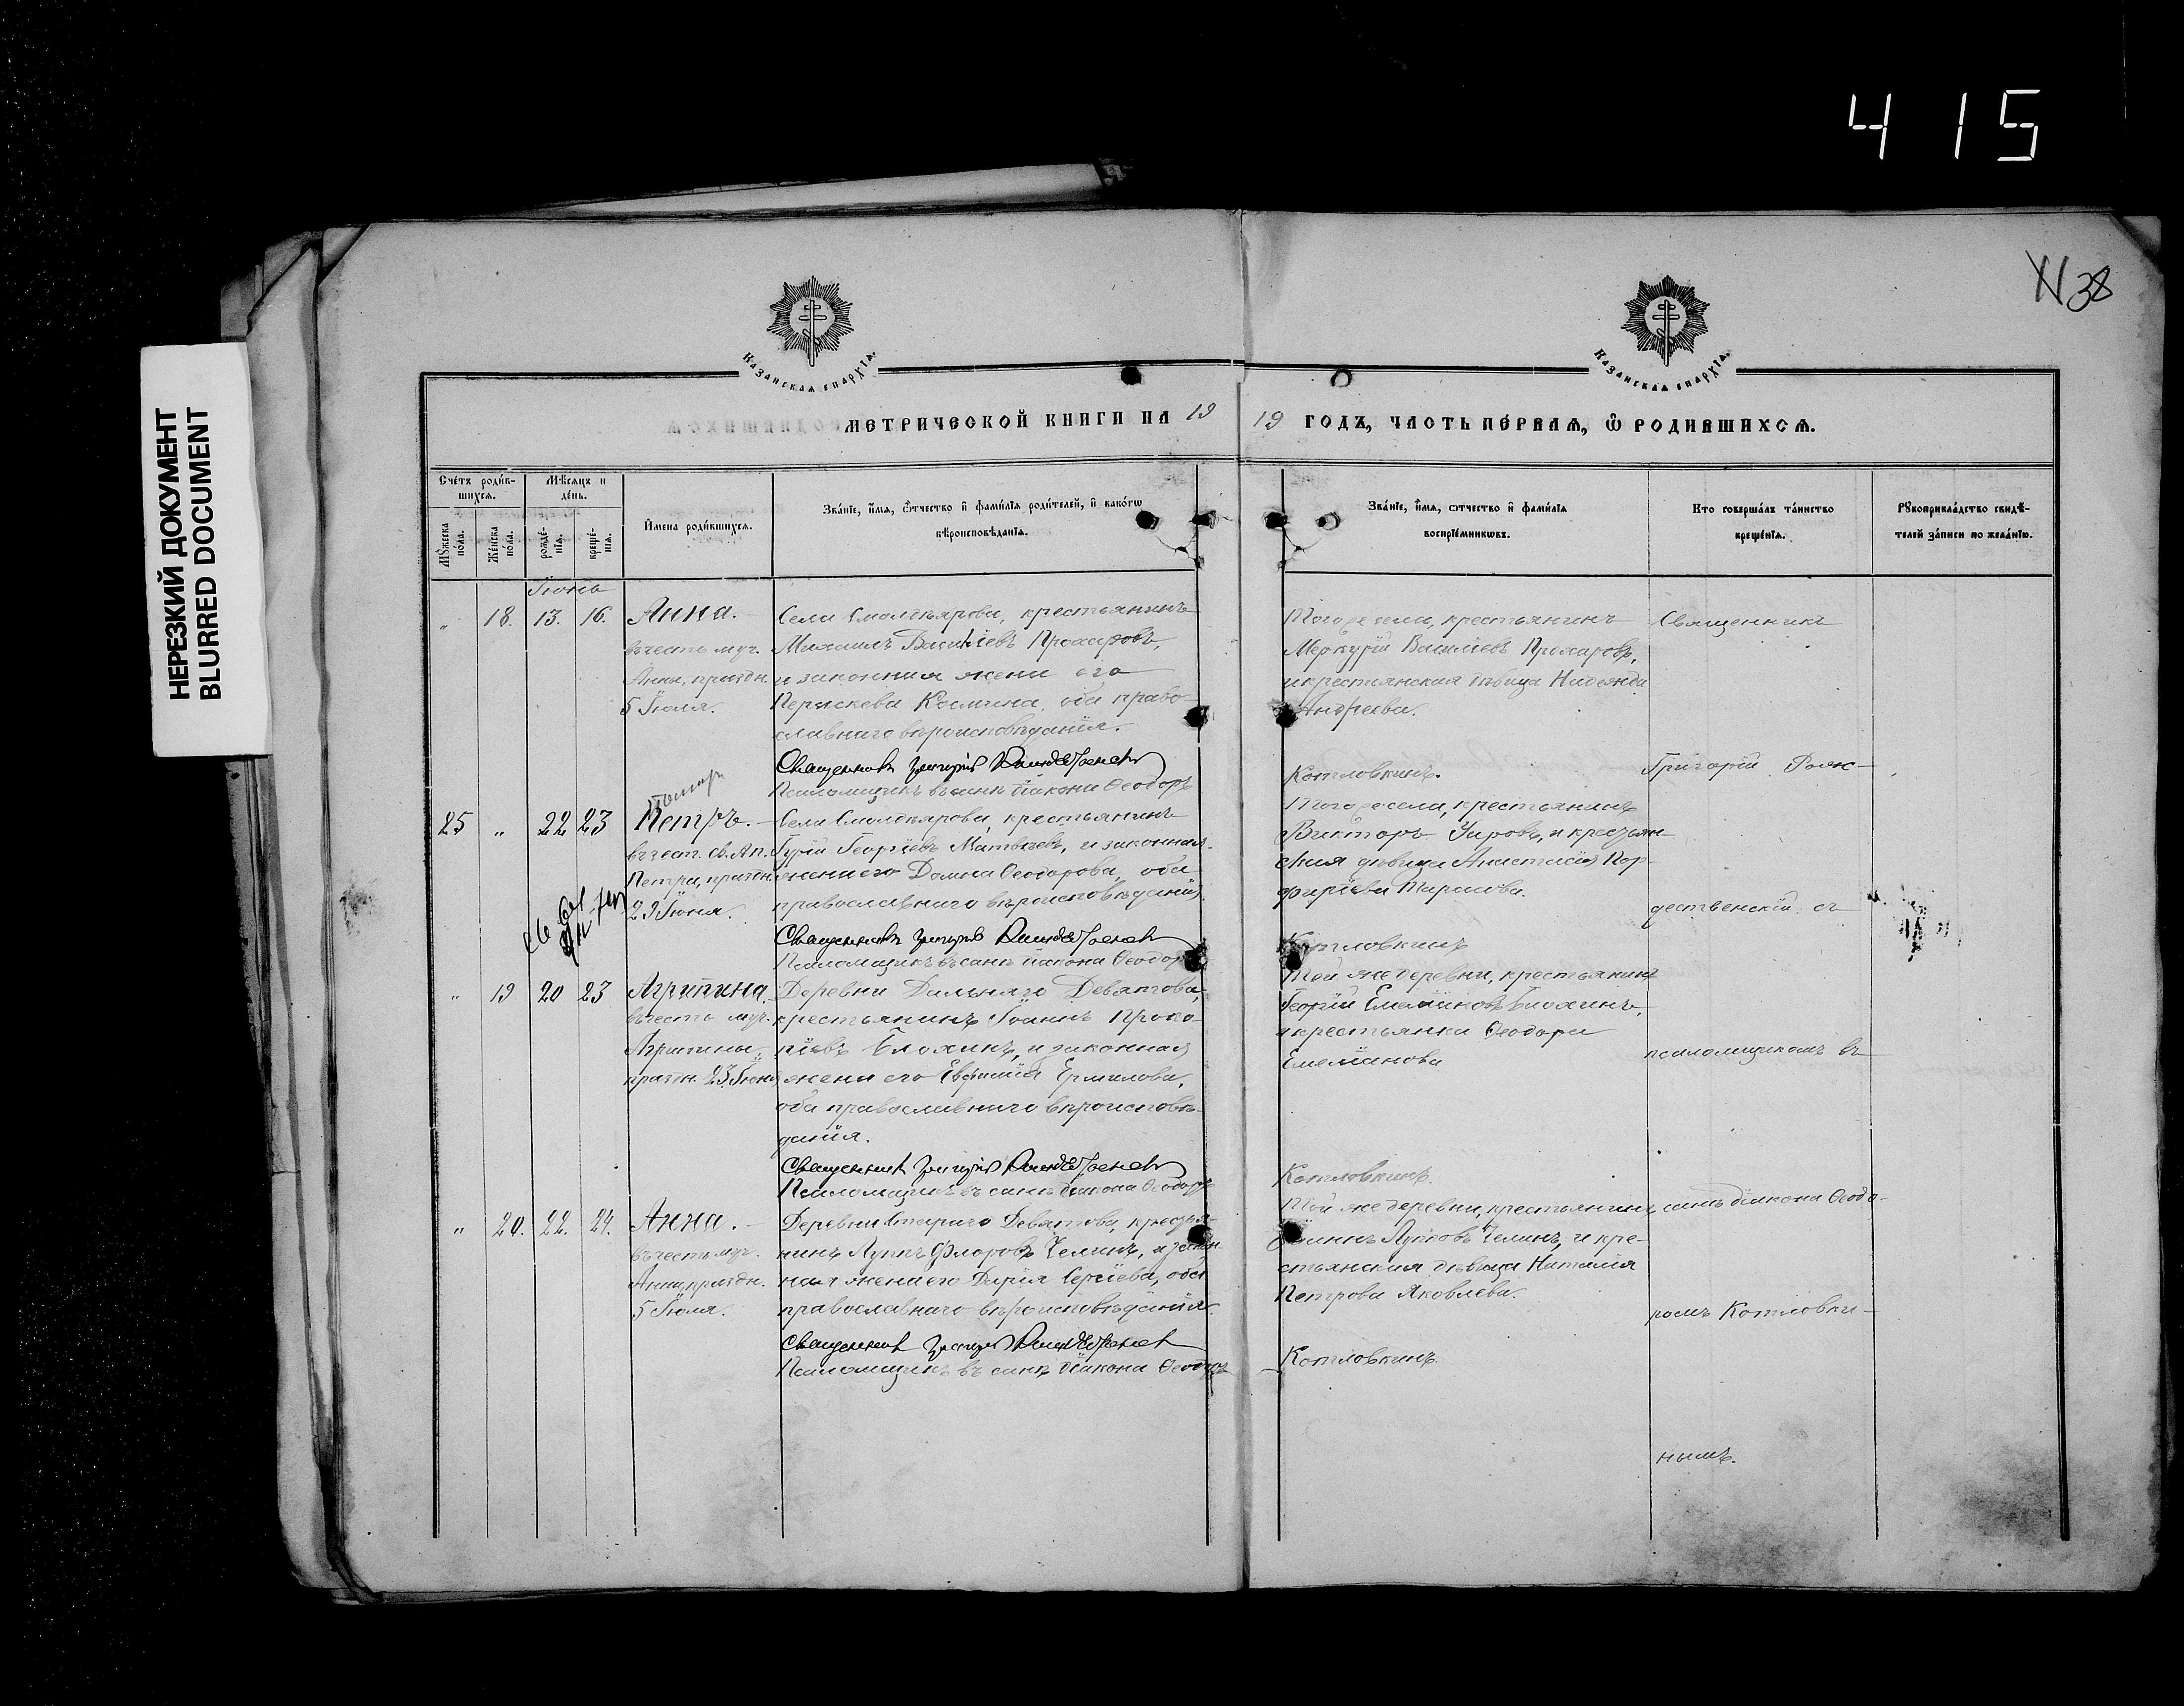 415
N 38
НЕРЕЗКИЙ ДОКУМЕНТ
BLURRED DOCUMENT
КАЗАНСКАЯ ЕПАРХІЯ.
КАЗАНСКАЯ ЕПАРХІЯ.
МЕТРИЧЕСКОЙ КНИГИ НА 19 19 ГОДЪ, ЧАСТЬ ПЕРВАЯ, Ѿ РОДИВШИХСЯ.
Счетъ родив-
шихся.
Мѣсяцъ и
день.
Мужеска пола.
Женска пола.
рожде-
нія.
креще-
нія.
Имена родившихся.
Званіе, имя, отчество и фамилія родителей, и какогѡ
вѣроисповѣданія.
Званіе, имя, отчество и фамилія
воспріемниковъ.
Кто совершалъ таинство
крещенія.
Рукоприкладство свидѣ-
телей записи по желанію.
Іюнь
„ 18. 13. 16. Анна.
въ честь муч.
Анны, праздн.
5 Іюля.
крестьянинъ
Михаилъ Васильевъ Прохаровъ,
и законная жена его
Косьмина, оба право-
славнаго вѣроисповѣданія.
Священникъ Григорій Рождественскій
Псаломщикъ въ санѣ діакона Ѳеодоръ
Того же села, крестьянинъ
Меркурій Васильевъ Прохаровъ,
и крестьянская дѣвица
Андреева.
Котловкинъ.
Священникъ
Григорій Рож-
25 „ 22 23 Петръ.
въ чест. св. Ап.
Петра, праздн.
29 Іюня.
крестьянинъ
Гурій Георгіевъ Матвѣевъ, и законная
жена его Домна Ѳеодорова, оба
православнаго вѣроисповѣданія.
Священникъ Григорій Рождественскій
Псаломщикъ въ санѣ діакона Ѳеодоръ
Того же села, крестьянинъ
Викторъ и крестьян-
ская дѣвица Анастасія Пор-
фиріева Тарасова.
Котловкинъ
дественскій съ
„ 19 20 23 Агрипина.
въ честь муч.
Агрипины,
праздн. 23 Іюня
Деревни Дальняго Девятова,
крестьянинъ Іоаннъ Проко-
піевъ Блохинъ, и законная
жена его Евфимія Ермилова,
оба православнаго вѣроисповѣ-
данія.
Священникъ Григорій Рождественскій
Псаломщикъ въ санѣ діакона Ѳеодоръ
Той же деревни, крестьянинъ
Георгій Емеліановъ Блохинъ,
и крестьянка Ѳеодора
Емеліанова
Котловкинъ.
псаломщикомъ въ
„ 20. 22. 24. Анна.
въ честь муч.
Анны, праздн.
5 Іюля.
Деревни Стараго Девятова, крестья-
нинъ Луппъ Флоровъ Челинъ, и закон-
ная жена его Дарія Сергіева, оба
православнаго вѣроисповѣданія.
Священникъ Григорій Рождественскій
Псаломщикъ въ санѣ діакона Ѳеодоръ
Той же деревни, крестьянинъ
Іоаннъ Лупповъ Челинъ, и кре-
стьянская дѣвица Наталія
Петрова Яковлева.
Котловкинъ.
санѣ діакона Ѳеодо-
ромъ Котловки-
нымъ.